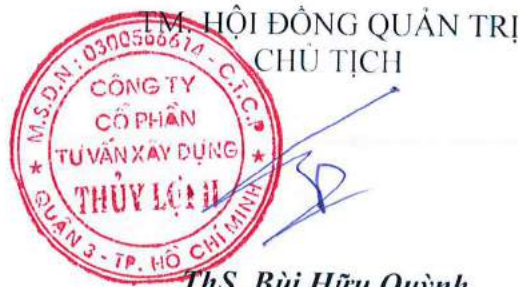 TM. HỘI ĐỒNG QUẢN TRỊ
CHỦ TỊCH
M.S.D.N: 0300566614 - C.T.C.P
CÔNG TY
CỔ PHẦN
TƯ VẤN XÂY DỰNG
THỦY LỢI II
QUẬN 3 - TP. HỒ CHÍ MINH
ThS. Bùi Hữu Quỳnh